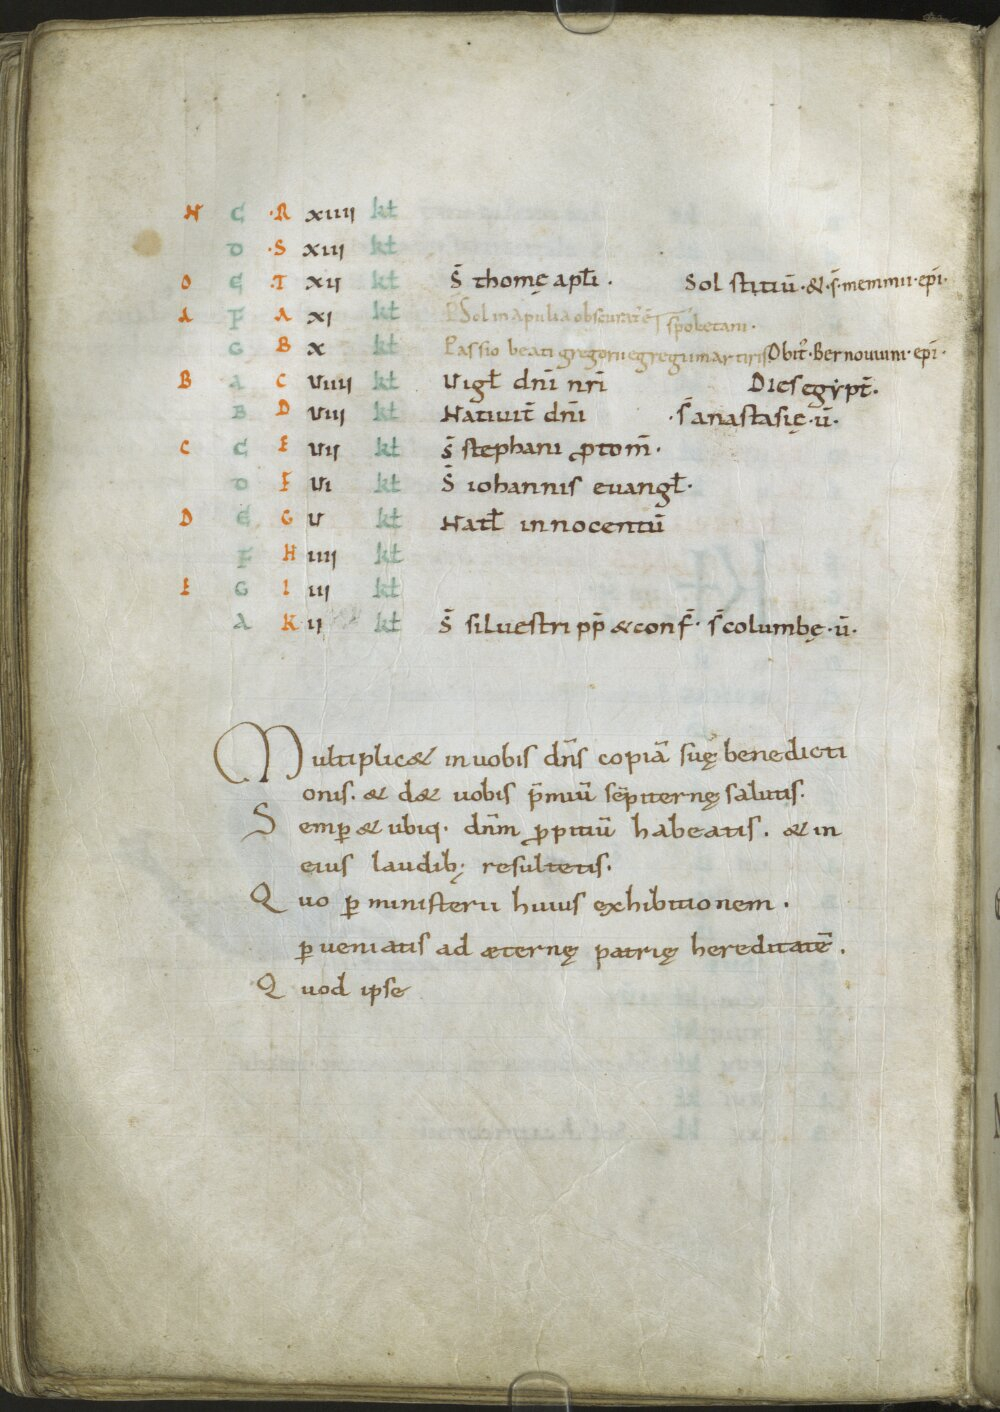 N C ·R xiiii kł
D ·S xiii kł
O E ·T xii kł S̄ thomę apłi . Sol stitiū · & · s̄ · memmii · ep̄i ·
A F A xi kł Sol in apulia obscurat᷒ ē spoletani ·
G B x kł Passio beati gregorii egregii martiris Obiit᷒ · Bernouuini · ep̄i ·
B A C viiii kł Vigł dn̄i nr̄i Dies egypt̄ .
B D viii kł Natiuit̄ dn̄i · s̄ anastasię · ū ·
C C E vii kł s̄ stephani ꝓtom̄ ·
D F vi kł S̄ iohannis euangł ·
D E G v kł Natł innocentū
F H iiii kł
E G I iii kł
A K ii kł S̄ siluestri pp̄ & conf̄ · s̄ columbę · ū ·
Multiplic& in uobis dn̄s copiā suę benedicti
onis . & d& uobis p̄miū sēpiternę salutis .
Semꝑ & ubiq · dn̄m ꝓpitiū habeatis . & in
eius laudib; resultetis .
Quo ꝑ ministerii huius exhibitionem .
ꝑueniatis ad æternę patrię hereditatē .
Quod ipse